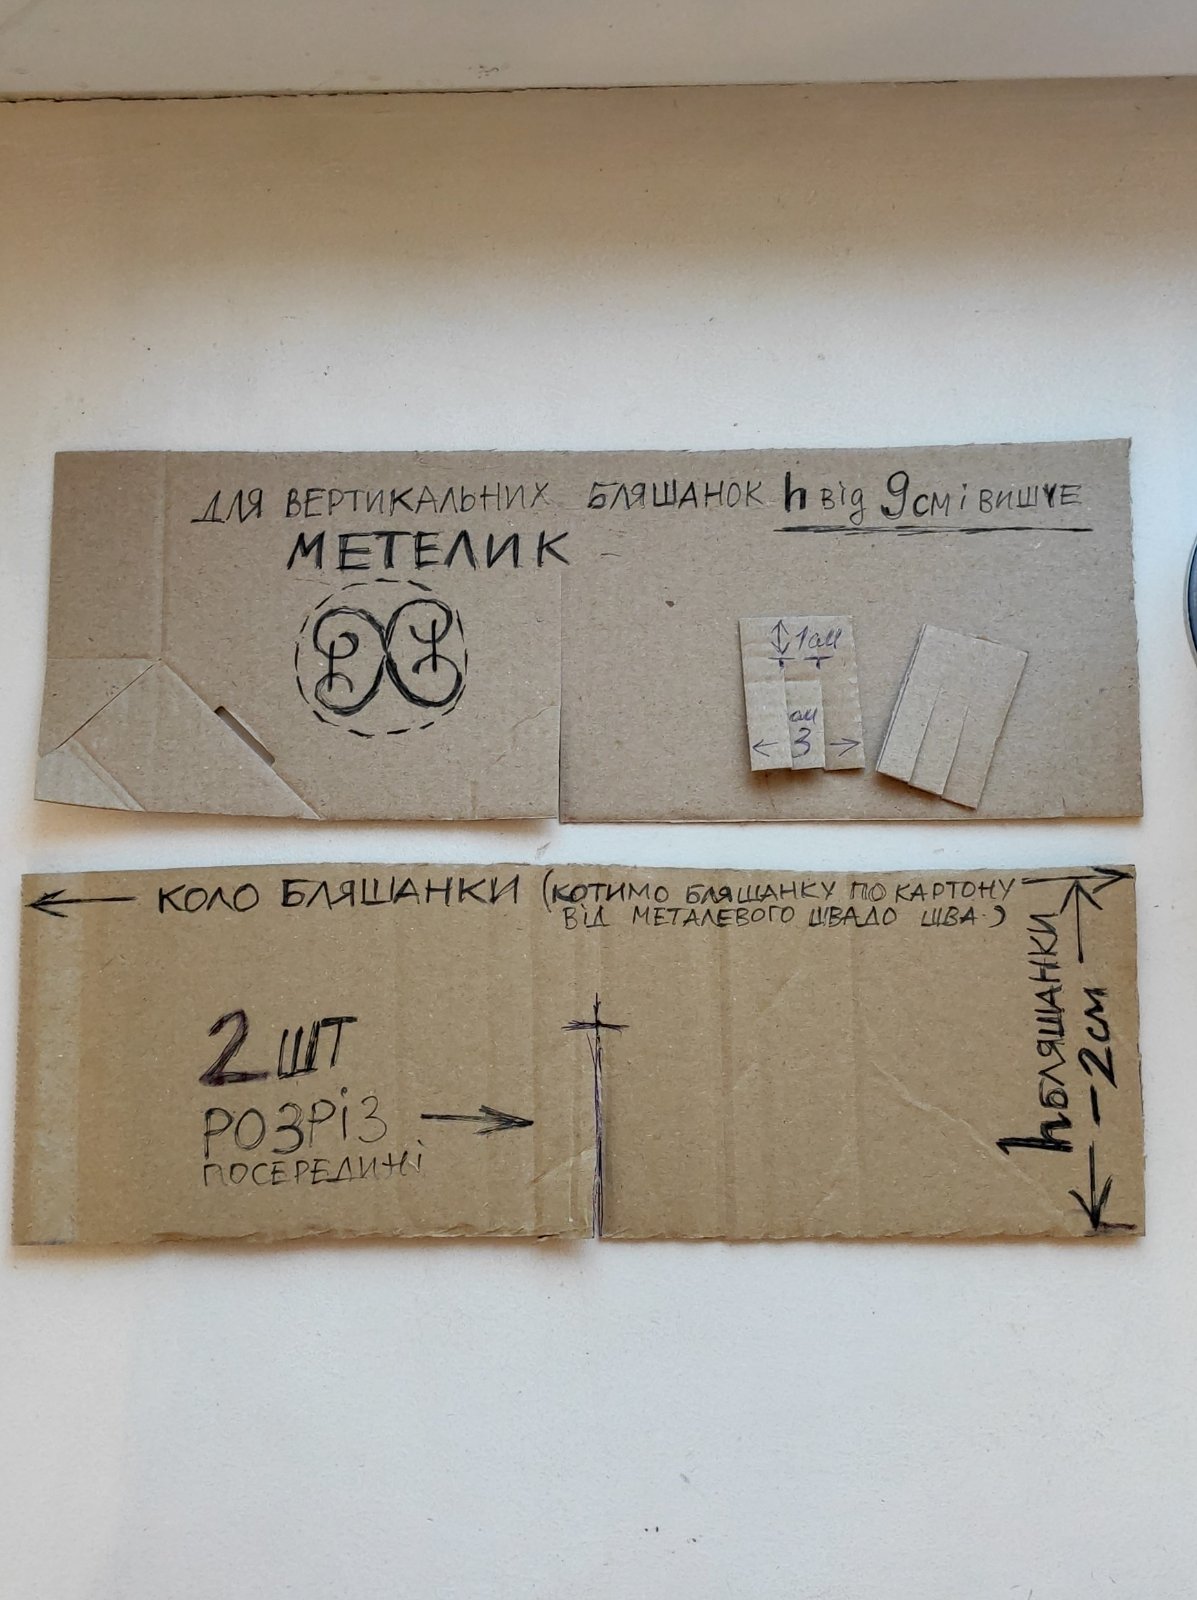 ДЛЯ ВЕРТИКАЛЬНИХ БЛЯШАНОК h від 9см і ВИЩЕ
МЕТЕЛИК
1см
см
3
КОЛО БЛЯШАНКИ (КОТИМО БЛЯШАНКУ ПО КАРТОНУ
ВІД МЕТАЛЕВОГО ШВА ДО ШВА.)
2 ШТ
РОЗРІЗ
ПОСЕРЕДИНІ
h БЛЯШАНКИ
- 2см